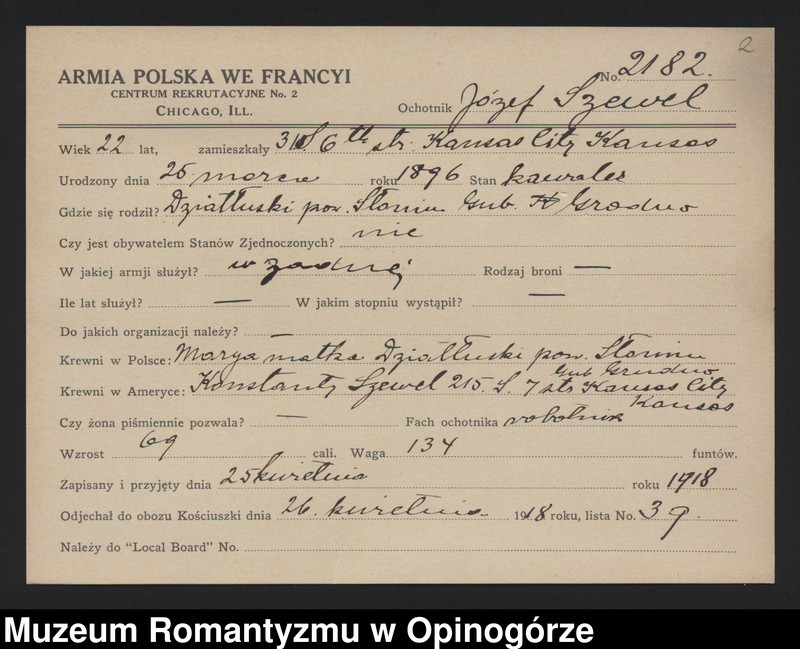 2
ARMIA POLSKA WE FRANCYI
CENTRUM REKRUTACYJNE No. 2
CHICAGO, ILL.
No. 2182.
Ochotnik Józef Szewel
Wiek 22 lat, zamieszkały 6th str. Kansas City Kansas
Urodzony dnia 25 marca roku 1896 Stan kawaler
Gdzie się rodził? Dziatłuski pow. Słonim Gub. Grodno
Czy jest obywatelem Stanów Zjednoczonych? nie
W jakiej armji służył? w żadnej Rodzaj broni —
Ile lat służył? — W jakim stopniu wystąpił? —
Do jakich organizacji należy? —
Krewni w Polsce: Marya matka Dziatłuski pow. Słonim
Gub Grudno
Krewni w Ameryce: Konstanty Szewel 215. S. 7 str Kansas City
Kansas
Czy żona piśmiennie pozwala? — Fach ochotnika robotnik
Wzrost 69 cali. Waga 134 funtów.
Zapisany i przyjęty dnia 25 kwietnia roku 1918
Odjechał do obozu Kościuszki dnia 26. kwietnia 1918 roku, lista No. 39.
Należy do "Local Board" No.
Muzeum Romantyzmu w Opinogórze